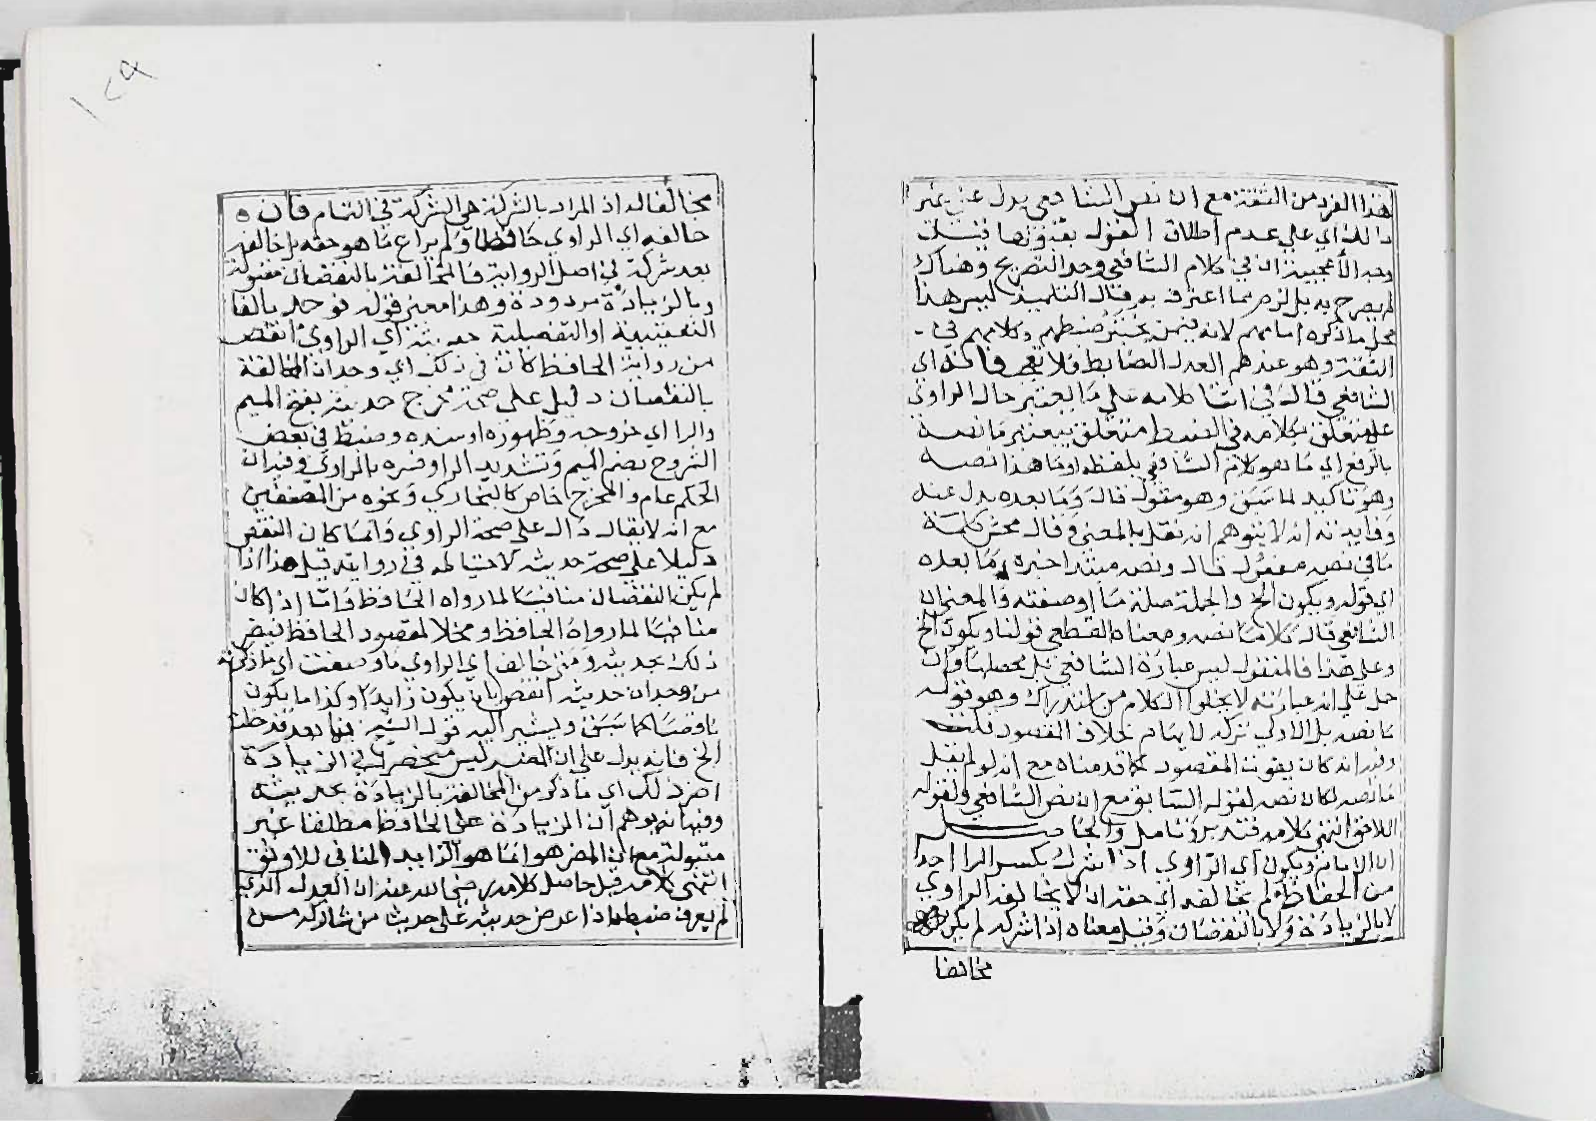 هذا الفرد من الثقة مع ان نص الشافعي يدل على غير
ذلك اي على عدم اطلاق القول بقبولها فتلك
وجه الأعجبية ان في كلام الشافعي وجد التصريح وهناك
لم يصرح به بل لزم مما اعترف به قال التلميذ ليس هذا
محل ما ذكره امامهم لانه فيمن يختبر ضبطهم وكلامهم في
الثقة وهو عندهم العدل الضابط فلا تعجب فانه اي
الشافعي قال في اثنا كلامه على ما يعتبر حال الراوي
على متعلق بكلامه في الضبط متعلق بيعتبر ما نصه
بالرفع اي ما هو كلام الشافعي بلفظه او ما هذا نصه
وهو تاكيد لما سبق وهو مقول قال وما بعده بدل عنه
وفايدته انه لا يتوهم انه نقل بالمعنى وقال محش كلمة
ما في نصه مفعول قال ونصه مبتدا خبره ما بعده
اي قوله ويكون الخ والجملة صلة ما او صفته والمعنى ان
الشافعي قال كلاما نصه ومعناه القطعي قولنا ويكون الخ
وعلى هذا فالمنقول ليس عبارة الشافعي بل محصلها وان
حمل على انه عبارته لا يخلوا الكلام من استدراك وهو قوله
ما نصه بل الاولى تركه لايهام خلاف المقصود قلت
وفيه انه كان يفوت المقصود كما قدمناه مع انه لو لم يقل
ما نصه لكان نصه لقوله السابق مع ان نص الشافعي ولقوله
اللاحق انتهى كلامه فتدبر وتامل والحاصل
ان الامام ويكون اي الراوي اذا شرك بكسر الرا احدا
من الحفاظ لم يخالفه اي حقه ان لا يخالفه الراوي
لا بالزيادة ولا بالنقصان وقيل معناه اذا شركه لم يكن
مخالفا
١٢٩
مخالفا له اذ المراد بالشركة هي الشركة في التمام فان
خالفه اي الراوي حافظا ولم يراع ما هو حقه بل خالفه
بعد شركته في اصل الرواية فالمخالفة بالنقصان مقبولة
وبالزيادة مردودة وهذا معنى قوله فوجد بالفا
التعقيبية او التفصيلية حديثه اي الراوي انقص
من رواية الحافظ كان في ذلك اي وجدان المخالفة
بالنقصان دليل على صحة مخرج حديثه بفتح الميم
والرا اي خروجه وظهوره او سنده وضبط في بعض
الشروح بضم الميم وتشديد الرا وفسره بالراوي وفيه ان
الحكم عام والمخرج خاص كالبخاري ونحوه من المصنفين
مع انه لا يقال دال على صحة الراوي وانما كان النقص
دليلا على صحة حديثه لاحتياطه في روايته قيل هذا اذا
لم يكن النقصان منافيا لما رواه الحافظ واما اذا كان
منافيا لما رواه الحافظ ومخلا لمقصود الحافظ فيضر
ذلك بحديثه ومتى خالف اي الراوي ما وصفت اي ما ذكرته
من وجدان حديثه انقص بان يكون زايدا وكذا ما يكون
ناقصا كما سبق ويشير اليه قول الشيخ فيما بعد
الخ فانه يدل على ان المضر ليس منحصرا في الزيادة
اضر ذلك اي ما ذكر من المخالفة بالزيادة بحديثه
وفيه انه يوهم ان الزيادة على الحافظ مطلقا غير
مقبولة مع ان المضر هو انما هو الزايد المنافي للاوثق
انتهى كلامه قيل حاصل كلامه رضي الله عنه ان العدل الذي
لم يعرف ضبطه اذا عرض حديثه على حديث من شاركه من